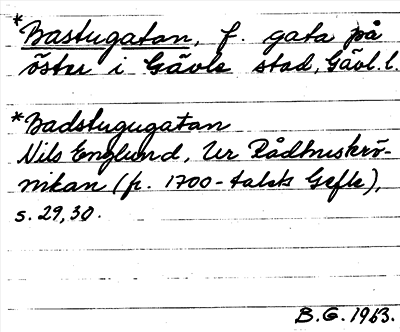 *Bastugatan, f. gata på
öster i Gävle stad, Gävl. l.
*Badstugugatan
Nils Englund, Ur Rådhuskrö-
nikan (fr. 1700-talets Gefle),
s. 29, 30.
B.G. 1963.